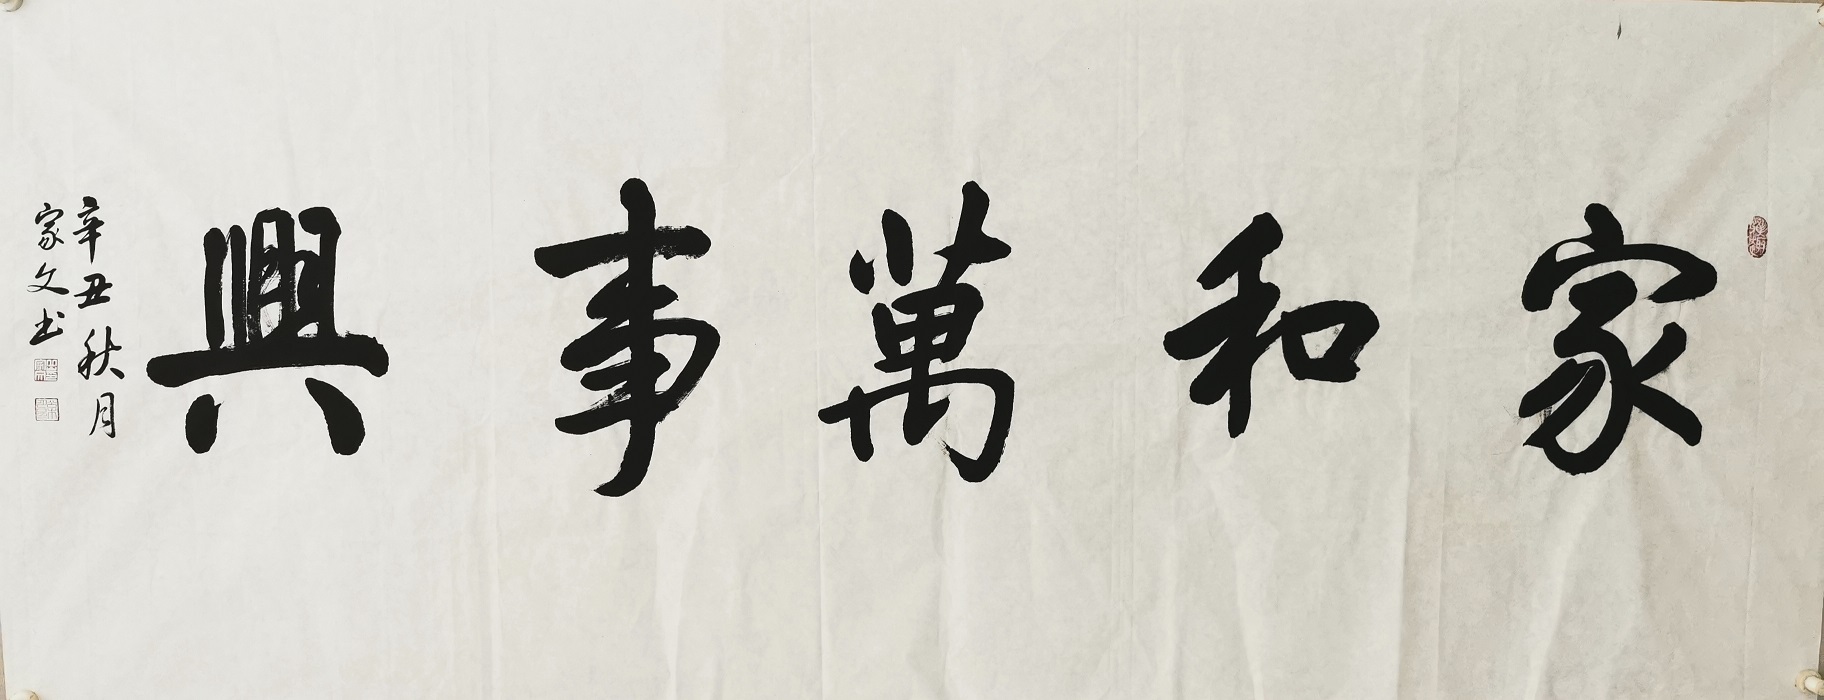 家和萬事興
辛丑秋月
家文书